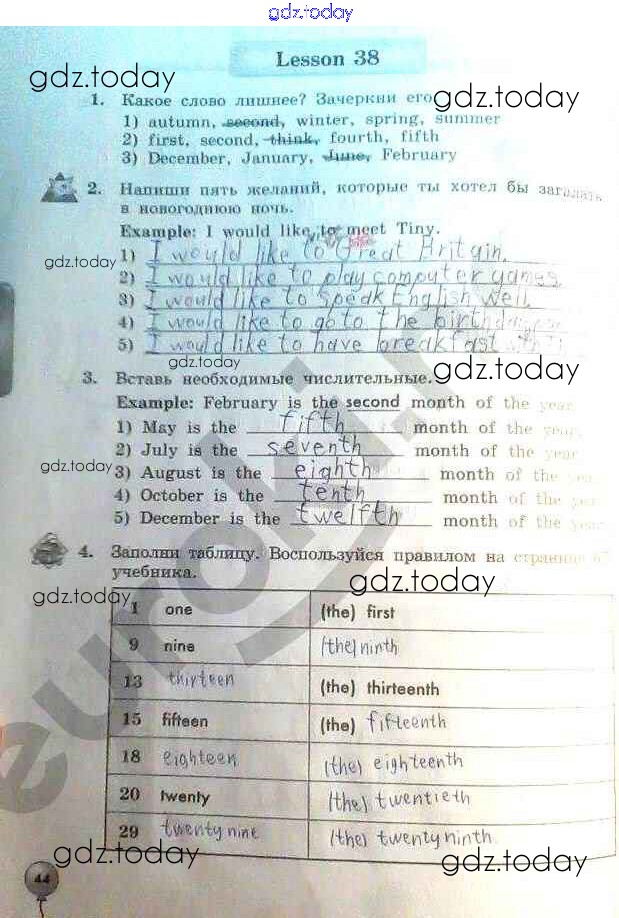 gdz.today
Lesson 38
gdz.today
gdz.today
1. Какое слово лишнее? Зачеркни его
1) autumn, second, winter, spring, summer
2) first, second, think, fourth, fifth
3) December, January, June, February
2. Напиши пять желаний, которые ты хотел бы загадать
в новогоднюю ночь.
Example: I would like to meet Tiny.
1) I would like to Great Britain.
gdz.today
2) I would like to play computer games
3) I would like to speak English well
4) I would like to go to the birthday
5) I would like to have breakfast with
gdz.today
gdz.today
3. Вставь необходимые числительные.
Example: February is the second month of the year
1) May is the fifth month of the year.
2) July is the seventh month of the year
gdz.today
3) August is the eighth month of the year
4) October is the tenth month of the year
5) December is the twelfth month of the year
4. Заполни таблицу. Воспользуйся правилом на странице
учебника.
gdz.today
gdz.today
1 one (the) first
9 nine (the) ninth
13 thirteen (the) thirteenth
15 fifteen (the) fifteenth
18 eighteen (the) eighteenth
20 twenty (the) twentieth
29 twenty nine (the) twenty ninth
gdz.today
gdz.today
44
euroki